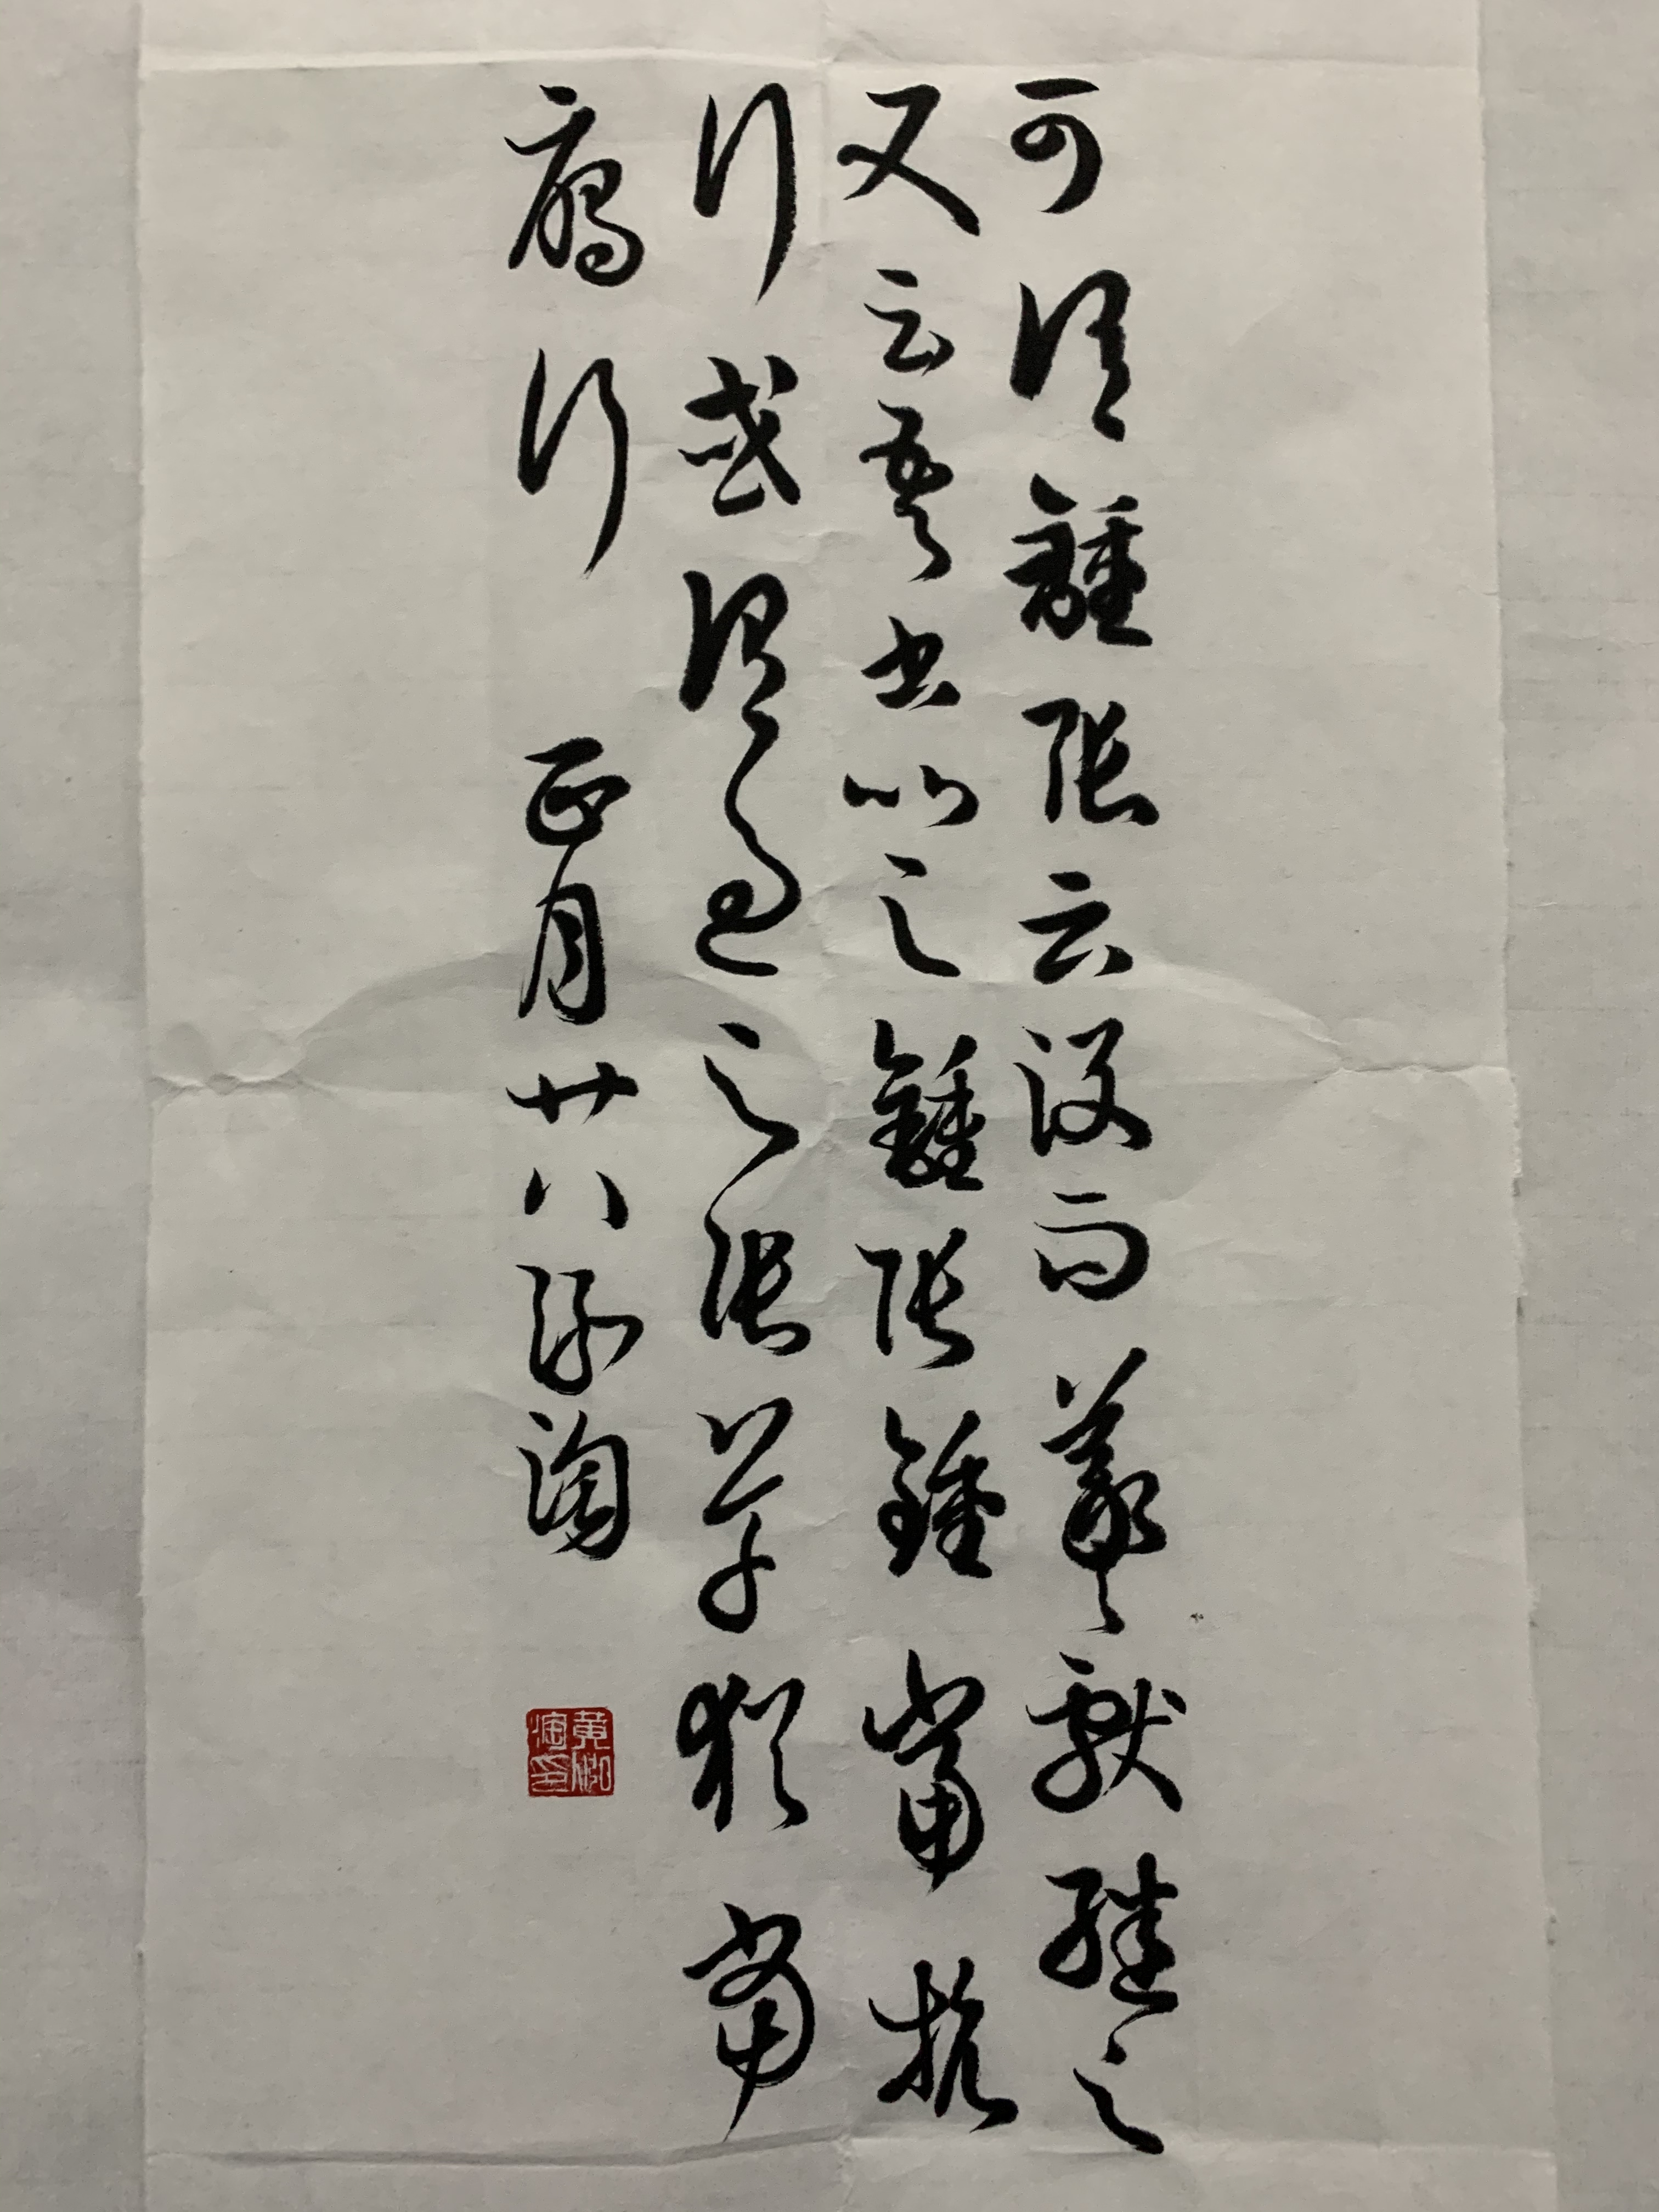 可謂鍾張云沒而羲獻繼之
又云吾書比之鍾張鍾當抗
行或謂過之張草猶當
鴈行 正月廿八